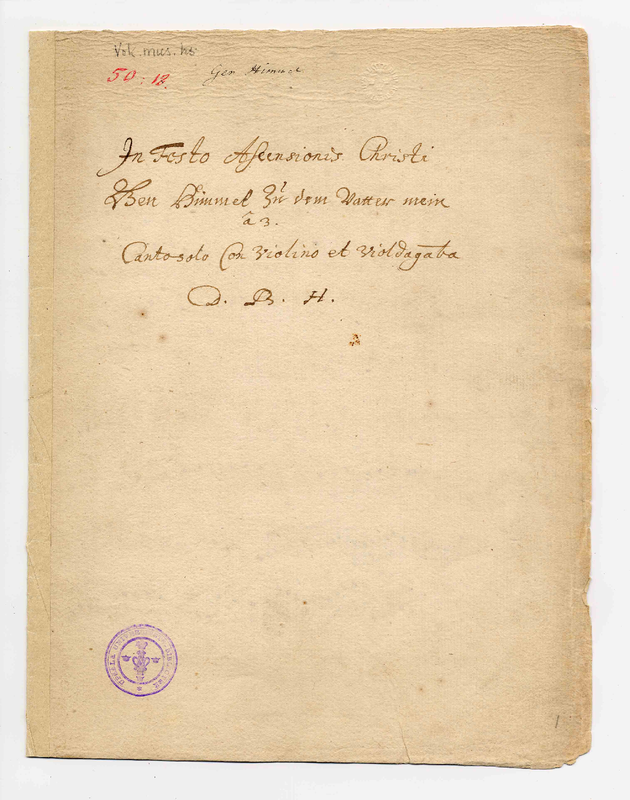 Vok. mus. hs
50:12. Gen Himmel
In Festo Ascensionis Christi
Gen Himmel Zu dem Vatter mein
â 3.
Canto solo Con Violino et Violdagaba
D. B. H.
UPSALA UNIVERSITETS BIBLIOTEK
1